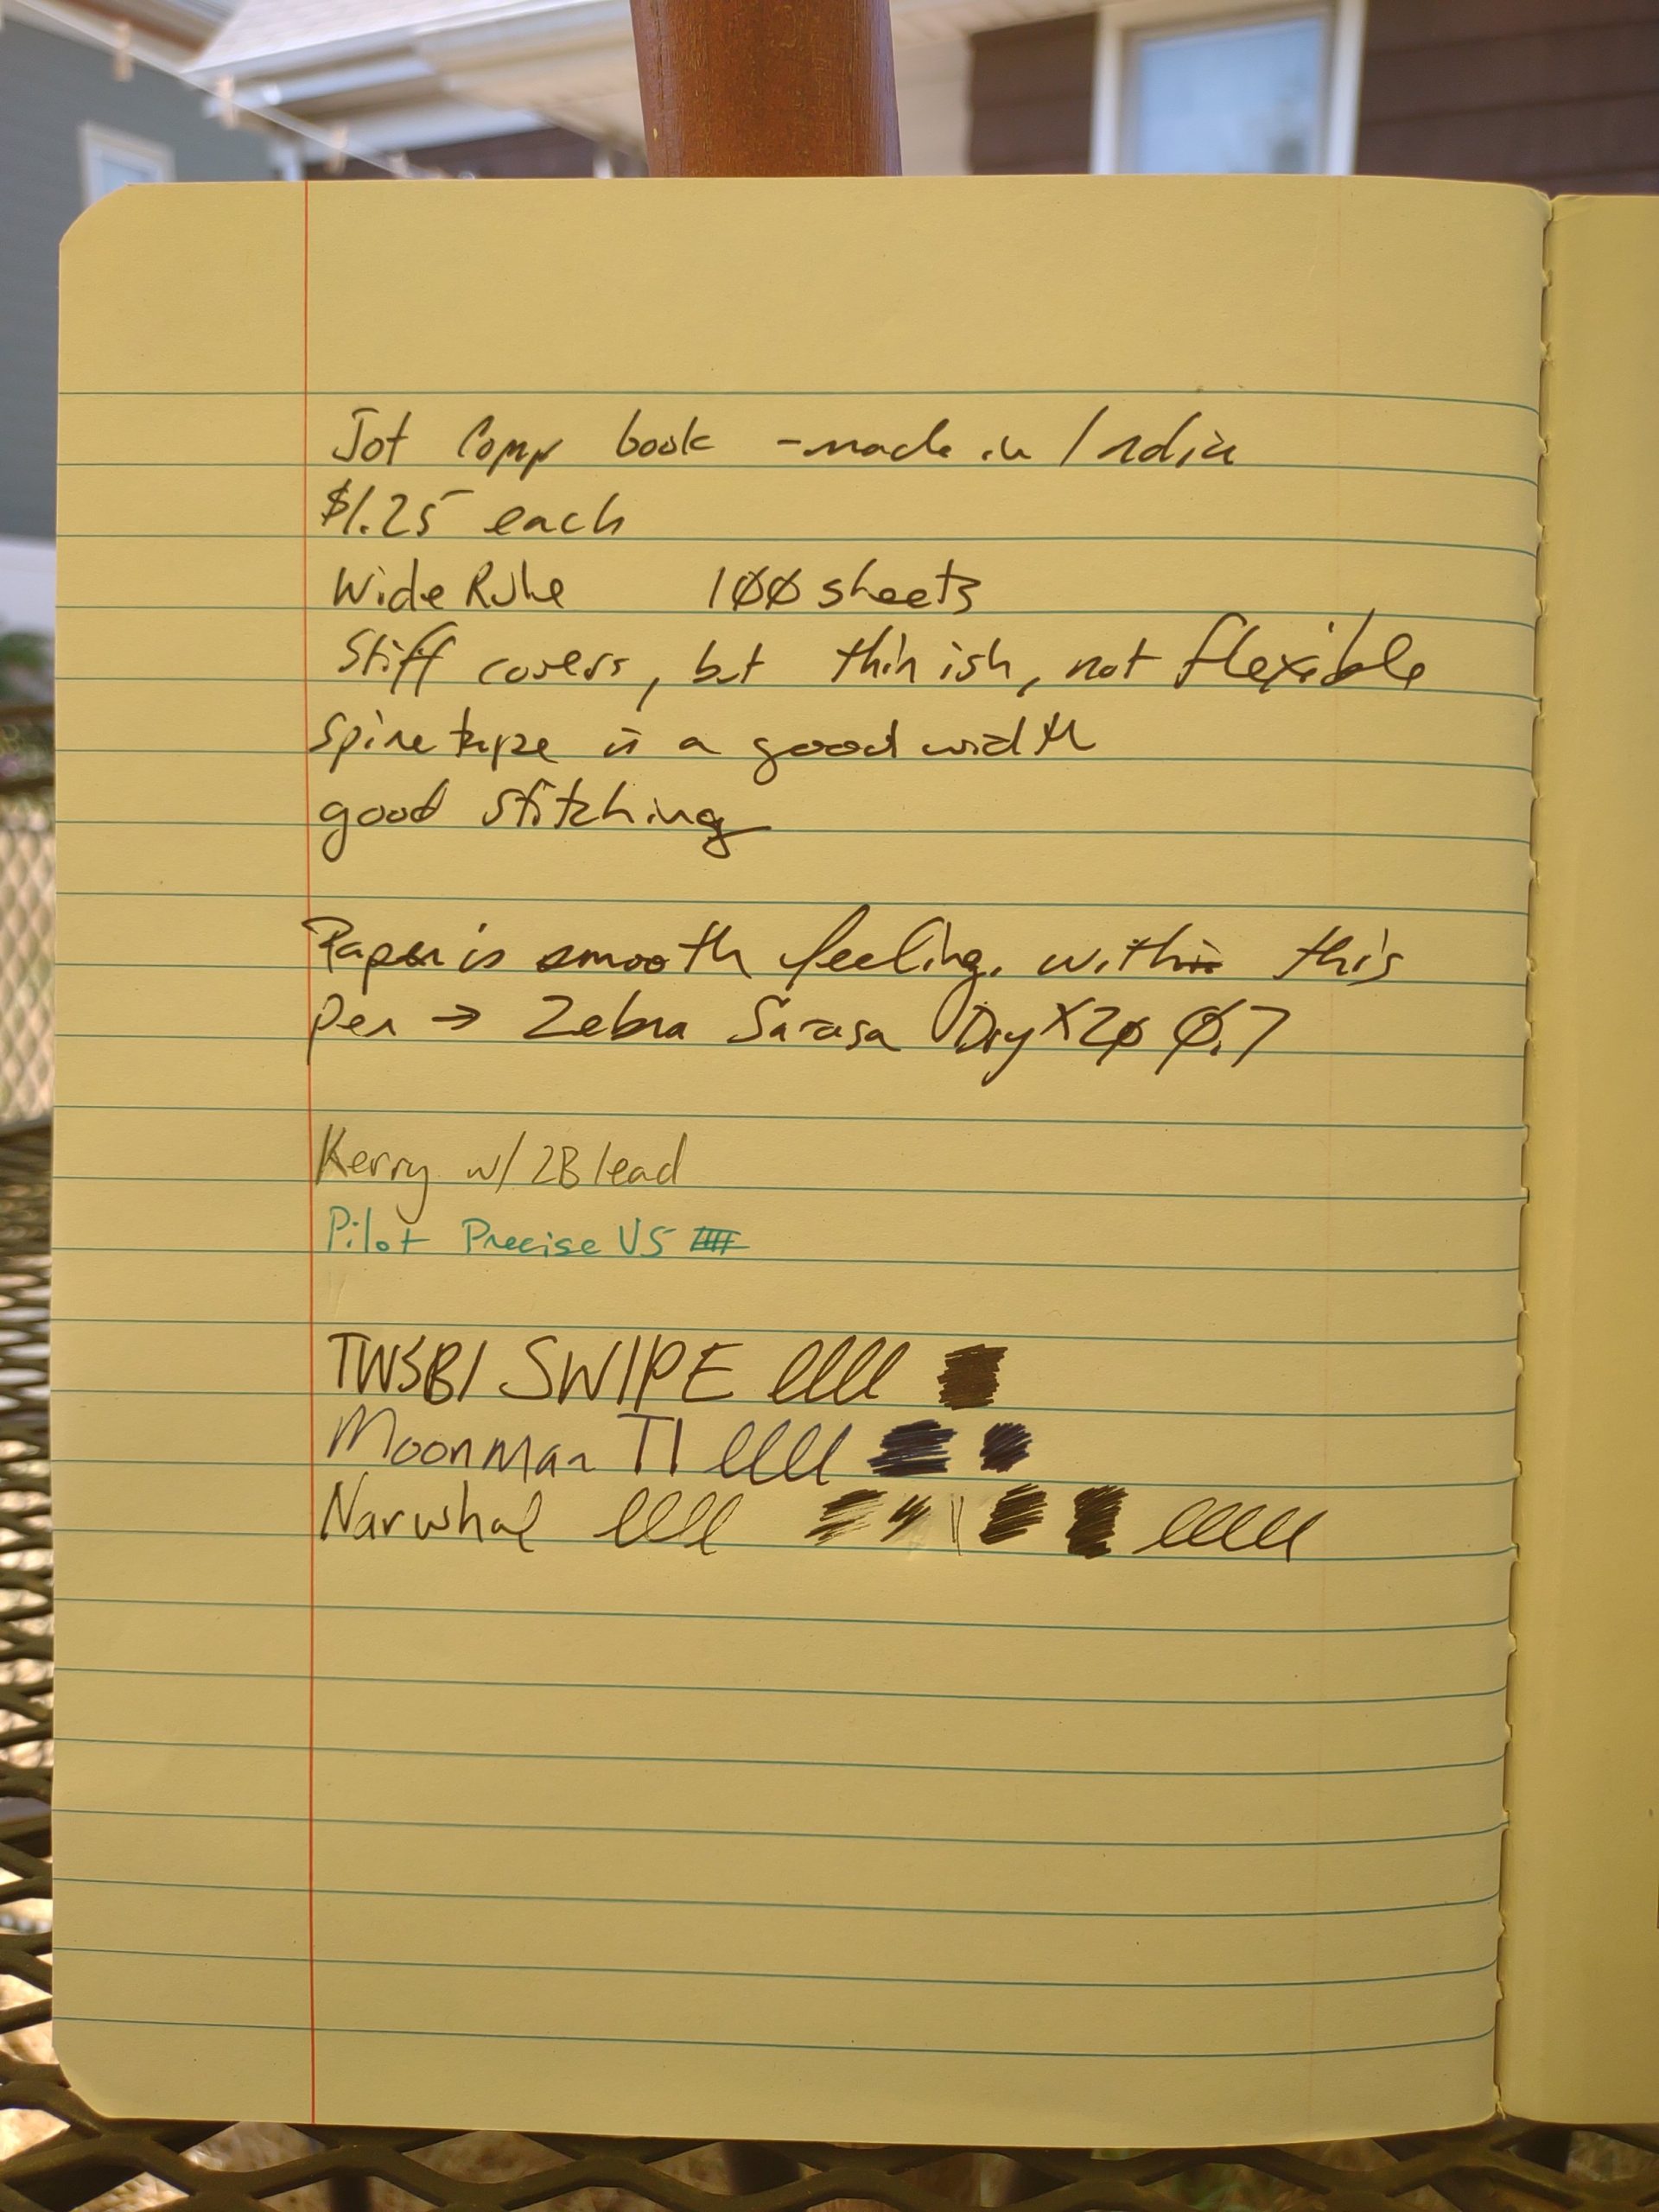 Jot Comp book - made in India
$1.25 each
Wide Rule 100 sheets
Stiff covers, but thinish, not flexible
Spine tape is a good width
good stitching
Paper is smooth feeling. with this
pen → Zebra Sarasa Dry X20 0.7
Kerry w/ 2B lead
Pilot Precise V5
TWSBI SWIPE
Moonman T1
Narwhal